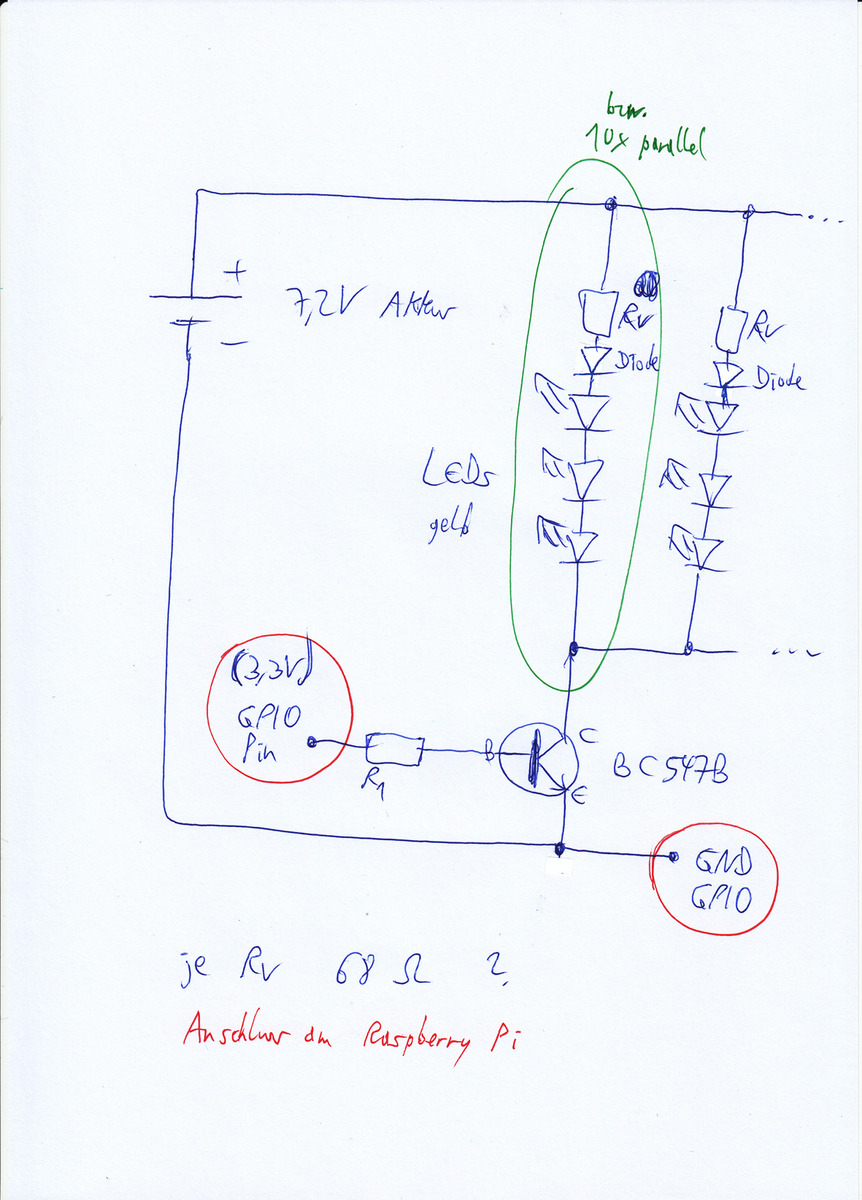 bzw.
10x parallel
...
+
7,2V Akku
-
Rv
Diode
Rv
Diode
LEDs
gelb
...
(3,3V)
GPIO
Pin
R1
B
C
E
BC547B
GND
GPIO
je Rv 68 Ω ?
Anschluss am Raspberry Pi